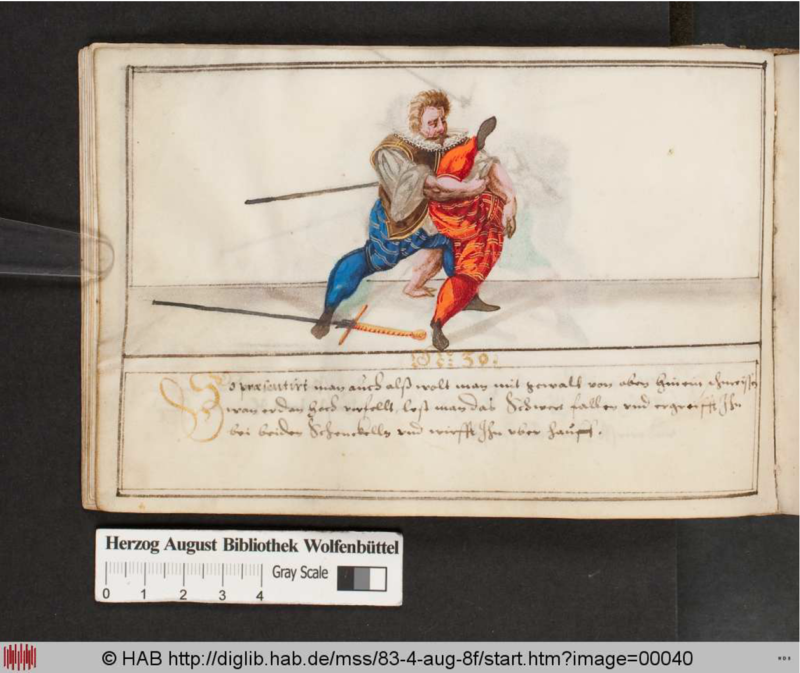 P: 30:
So præsentirt man auch alß wolt man mit gewalt von oben hinein schmeissen
wan er dan hoch verfellt, lest man das Schwert fallen und ergreifft Ihn
bei beiden Schenckelln und wirfft Ihn uber haupt.
Herzog August Bibliothek Wolfenbüttel
Gray Scale
0 1 2 3 4
© HAB http://diglib.hab.de/mss/83-4-aug-8f/start.htm?image=00040